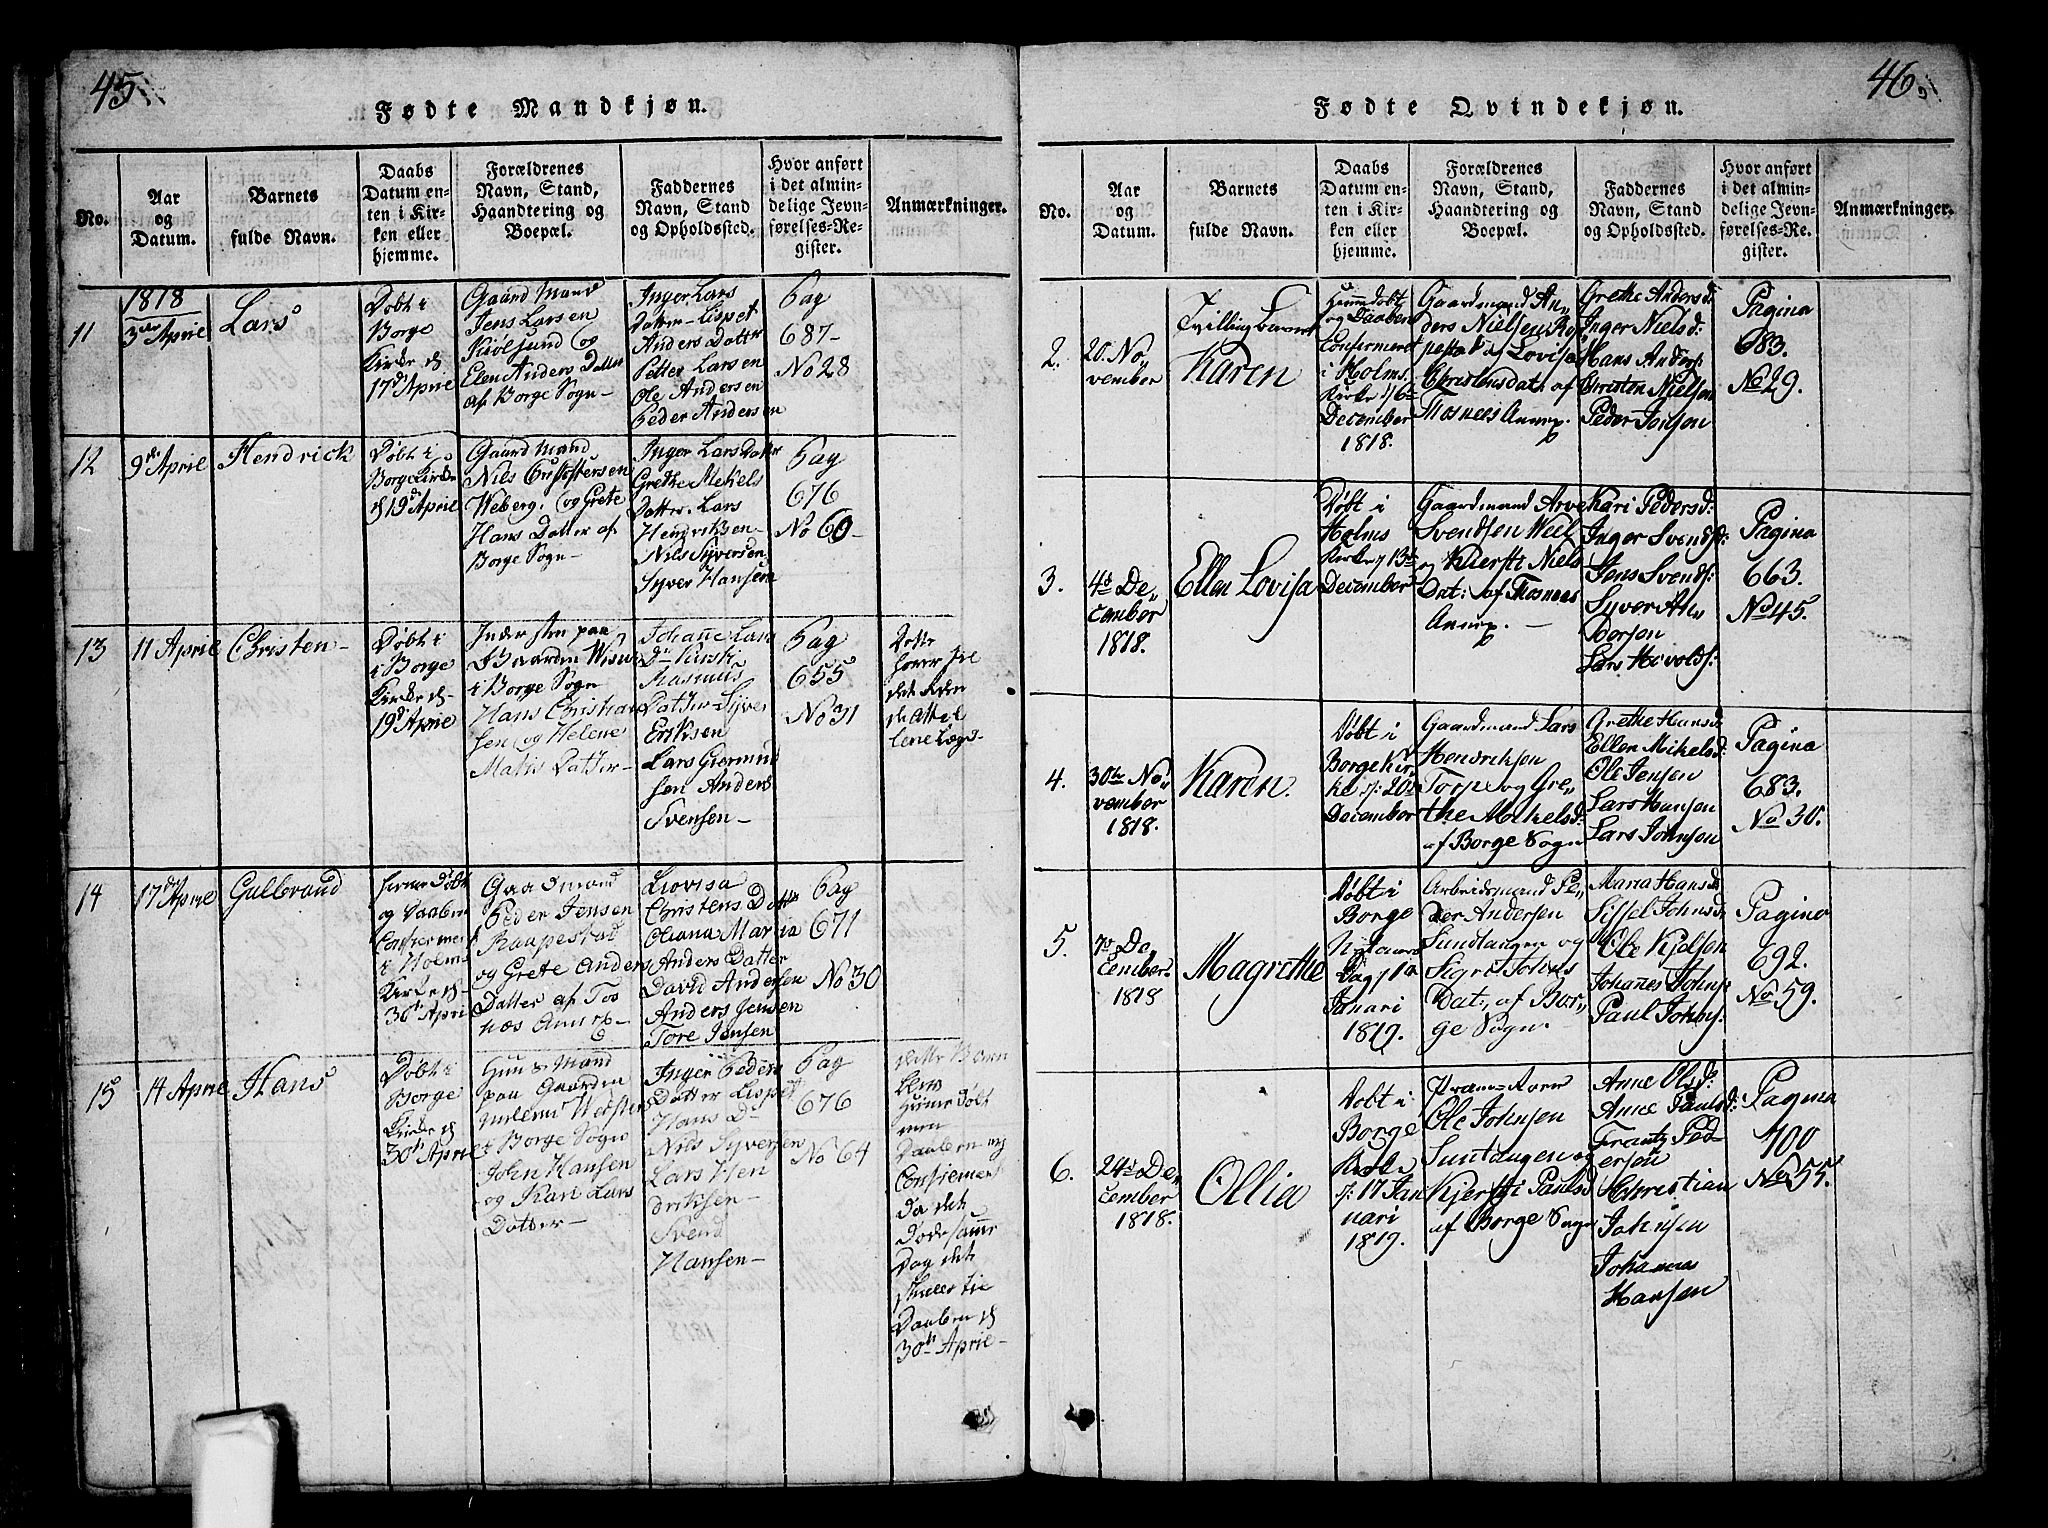 45
Fødte Mandkjøn.
No.
Aar
og
Datum.
Barnets
fulde Navn.
Daabs
Datum en-
ten i Kir-
ken eller
hjemme.
Forældrenes
Navn, Stand,
Haandtering og
Boepæl.
Faddernes
Navn, Stand
og Opholdssted.
Hvor anført
i det almin-
delige Jevn-
førelses-Re-
gister.
Anmærkninger.
11
1818
3die April
Lars
Døbt i
Borge
Kirke d
17d April
Gaard Mand
Jens Larsen
og
Elen Anders Datter
af Borge Sogn-
Inger Lars
Datter- Lispet
Anders Datter
Petter Larsen
Ole Andersen
Peder Andersen
Pag
687-
No 28
12
9de April
Hendrick
Døbt i
Borge Kirke
d 19d April
Gaard Mand
Nils Cristofersen
Weberg. og Grete
Hans Datter af
Borge Sogn-
Inger Lars Datter
Grethe Mekels
Datter. Lars
Hendriksen-
Nils Syversen
Syver Hansen
Pag
676
No 60-
13
11 April
Christen-
Døbt i
i Borge
Kirke d-
19d April
Indersten paa
Gaarden
i Borge Sogn
Hans Christian
sen og Helene
Matis Datter-
Johane Lars
Dr Kirsti
Rasmus
Datter-Syver
Eriksen
Lars Giermund
sen Anders
Svensen-
Pag
655
No 31
Dette
hører
det
14
17de April
Gulbrand
hieme Døbt
og Daaben
Confiermert
i Holms
Kirke d-
30te April
Gaadmand
Peder Jensen
Raapestad
og Grete Anders
Datter af Tos
næs Anex-
Liovisa
Christens Datter
Oliana Maria
Anders Datter
David Andersen
Anders Jensen
Tore Jensen
Pag
671
No 30
15
14 April
Hans
Døbt i
Borge
Kirke d
30te April
Huus Mand
paa Gaarden
i Borge Sogn
John Hansen
og Kari Lars
Datter-
Inger Peders
Datter Lispet
Hans Dr
Nils Syversen
Lars Hen
driksen-
Svend
Hansen-
Pag
676
No 64
dette Barn
blev
hieme Døbt
men
Daaben ey
Confiermert
Da det
Døde samme
Dag det
skulle til
Daaben d
30te April-
46.
Fødte Qvindekjøn.
No.
Aar
og
Datum.
Barnets
fulde Navn.
Daabs
Datum en-
ten i Kir-
ken eller
hjemme.
Forældrenes
Navn, Stand,
Haandtering og
Boepæl.
Faddernes
Navn, Stand
og Opholdssted.
Hvor anført
i det almin-
delige Jevn-
førelses-Re-
gister.
Anmærkninger.
2.
20. No,,
vember
Tvillingbarnet
Karen
Hiemedøbt
og Daaben
Confermeret
i Holms
Kirke d 6te
December
1818.
Gaardmand An,,
ders Nielsen Ro,,
pestad og Lovisa
Christensdatr af
Thosnees Annex
Grethe Andersd:
Inger Nielsd:
Hans Anders:
Christen Nielsen
Peder Jonsen
Pagina
683.
No 29.
3.
4de De,,
cember
1818.
Ellen Lovisa
Døbt i
Holms
Kirke d 13de
December
Gaardmand Arve
Svendsen Weel
og Kiersti Niels
Dat: af Thosnees
Annex. -
Kari Pedersd:
Inger Svendsd:
Jens Svends:
Syver An,,
dersen
Lars Hovolds:
Pagina
663.
No 45.
4.
30te No,,
vember
1818.
Karen.
Døbt i
Borge Kir,,
ke d: 20de
December
Gaardmand Lars
Hendriksen
Torp og Gre,,
the Mikelsd:
af Borge Sogn
Grethe Hansd:
Ellen Mikelsd:
Ole Jensen
Lars Hansen
Lars Johnsen
Pagina
683.
No 30.
5.
7de De,,
cember.
1818
Magrethe
Døbt i
Borge
Nytaars
Dag d 1ste
Januari
1819.
Arbeidsmand Pe,,
der Andersen
Sundtangen og
Sigri Johns
Dat:, af Bor,,
ge Sogn-
Maria Hansd:
Sissel Johnsd:
Ole Kjelsen
Johannes Johns:
Paul Johns:
Pagina
692.
No 59.
6.
24de De,,
cember
1818.
Ollia
Døbt i
Borge
Kirke
d: 17 Jan
uari
1819.
Ole Johnsen
Suntangen og
Kjersti Paulsd
af Borge Sogn
Anne Olsd:
Anne Paulsd:
Frantz Ped
ersen
Christian
Johnsen
Johannes
Hansen
Pagina
700
No 55.